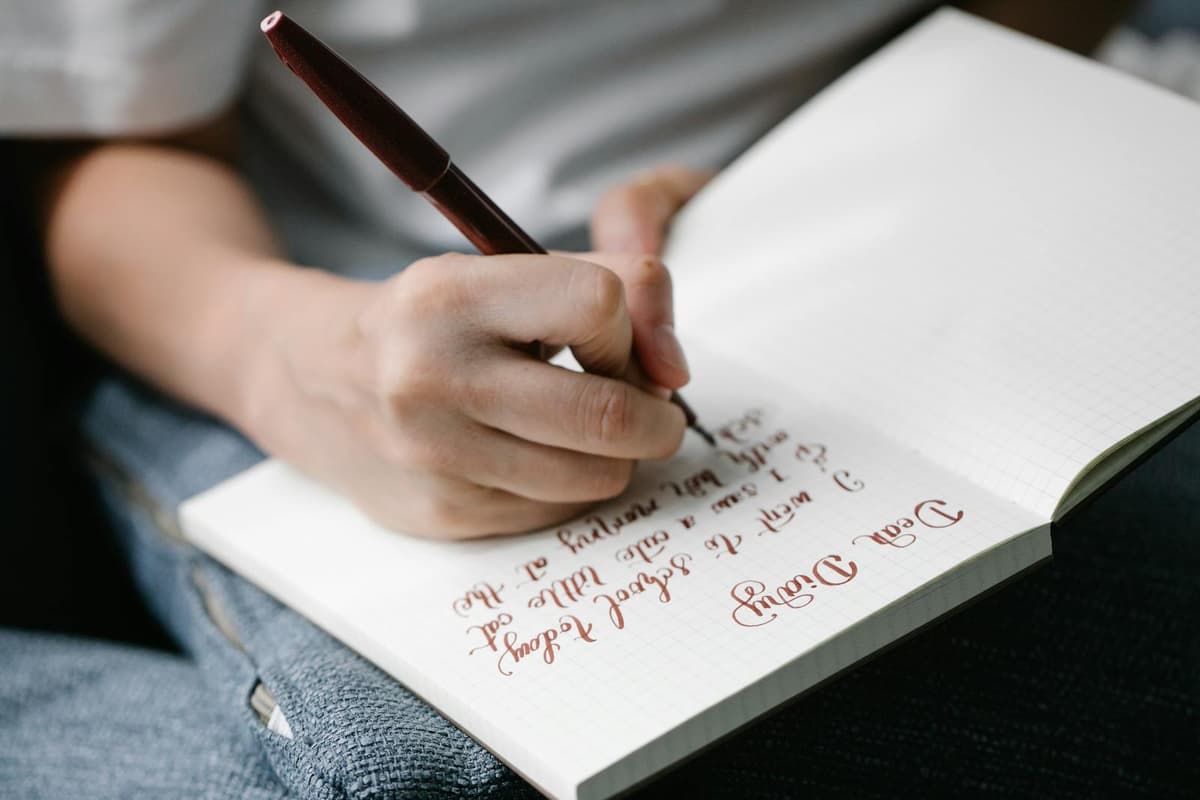 Dear Diary
I went to school today
I saw a cute little cat
with her mommy at the